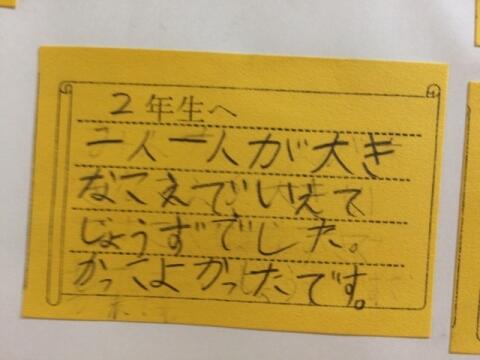 2年生へ
一人一人が大き
なこえでいえて
じょうずでした。
かっこよかったです。